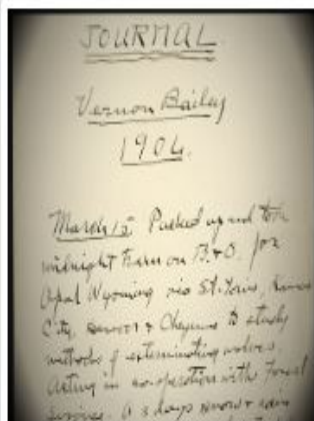 JOURNAL
Vernon Bailey
1904.
March 15 Packed up and took
midnight train on B.&O. for
Opal Wyoming via St. Louis, Kansas
City, & Cheyenne to study
methods of exterminating wolves,
acting in co-operation with Forest
Service. A 3 days snow & rain